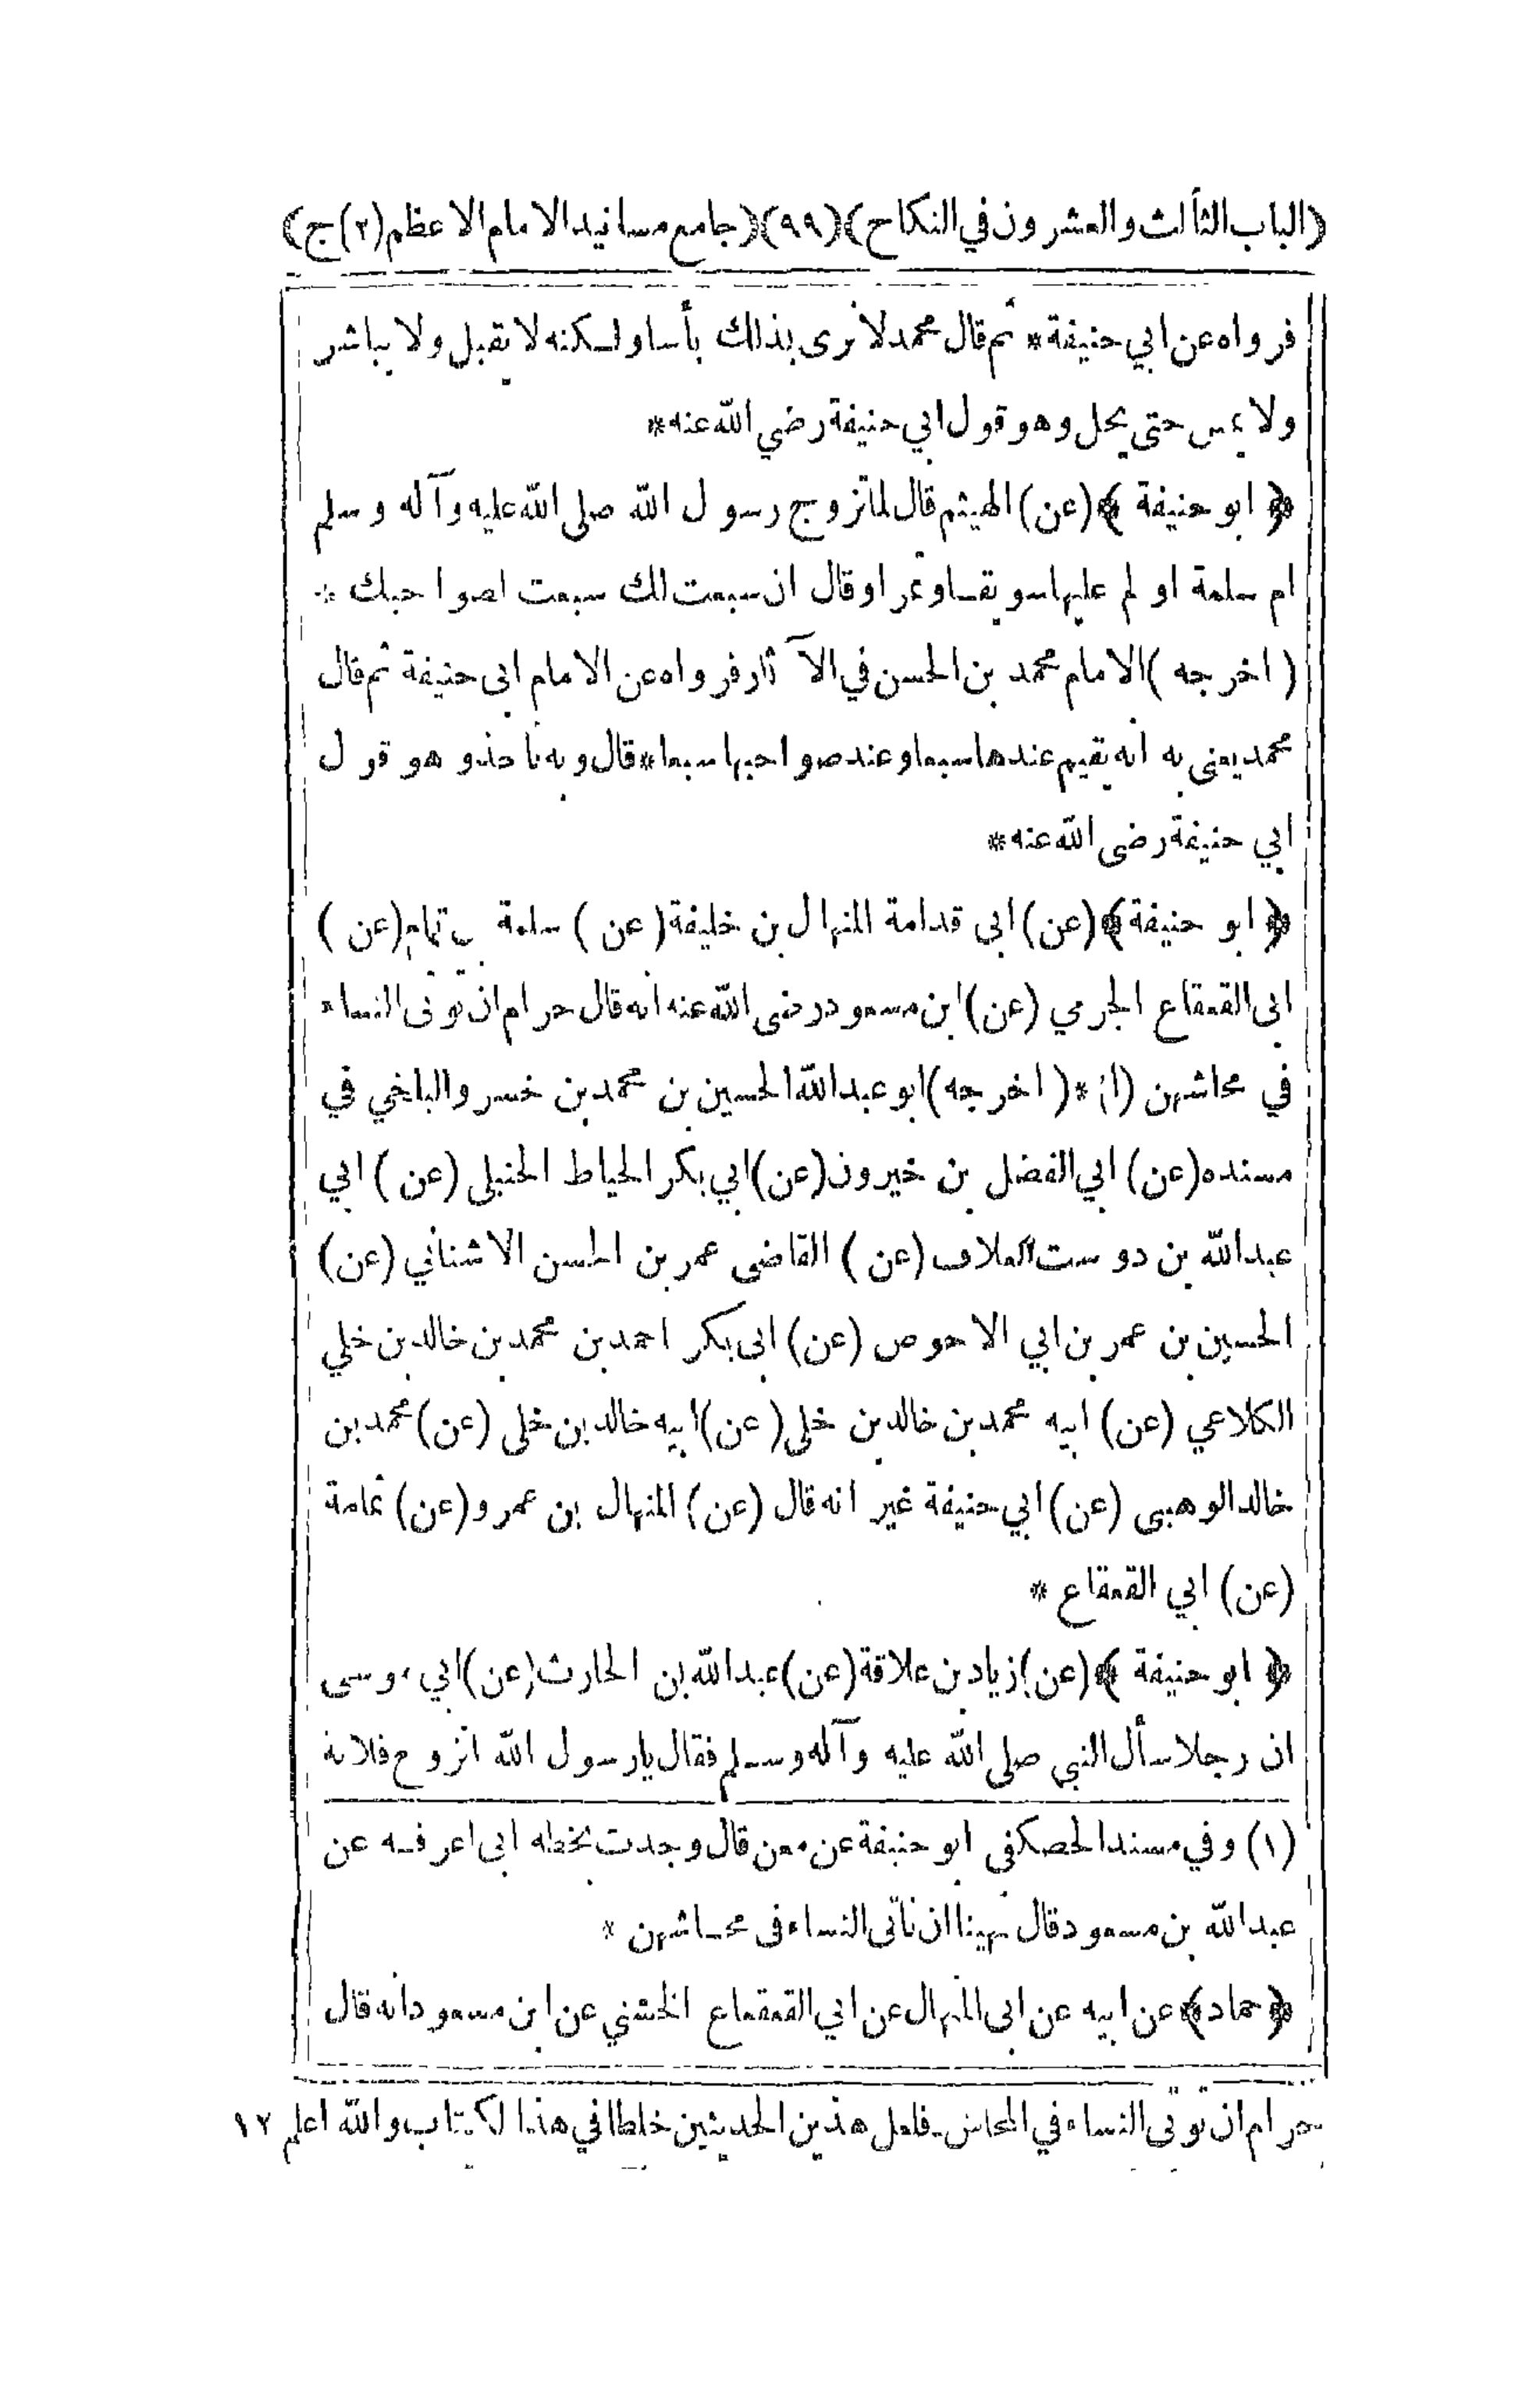 (الباب الثالث والعشرون في النكاح)(٩٩)(جامع مسانيد الامام الاعظم(٢)ج)
فرواه عن ابي حنيفة* ثم قال محمد لا نرى بذلك بأسا ولكنه لا يقبل ولا يباشر
ولا يمس حتى يحل وهو قول ابي حنيفة رضي الله عنه*
﴿ ابو حنيفة ﴾ (عن) الهيثم قال لما تزوج رسول الله صلى الله عليه وآله وسلم
ام سلمة اولم عليها سويقا وتمرا وقال ان سبعت لك سبعت لصواحبك *
( اخرجه ) الامام محمد بن الحسن في الآثار فرواه عن الامام ابى حنيفة ثم قال
محمد يعنى به انه يقيم عندها سبعا وعند صواحبها سبعا* قال وبه نأخذ وهو قول
ابي حنيفة رضى الله عنه*
﴿ ابو حنيفة ﴾ (عن) ابى قدامة المنهال بن خليفة (عن) سلمة بن تمام (عن)
ابى القعقاع الجرمي (عن) ابن مسعود رضى الله عنه انه قال حرام ان تؤتى النساء
في محاشهن (١) * (اخرجه) ابو عبدالله الحسين بن محمد بن خسرو البلخي في
مسنده (عن) ابي الفضل بن خيرون (عن) ابي بكر الخياط الحنبلى (عن) ابي
عبدالله بن دوست العلاف (عن) القاضى عمر بن الحسن الاشناني (عن)
الحسين بن عمر بن ابي الاحوص (عن) ابى بكر احمد بن محمد بن خالد بن خلي
الكلاعي (عن) ابيه محمد بن خالد بن خلى (عن) ابيه خالد بن خلى (عن) محمد بن
خالد الوهبى (عن) ابي حنيفة غير انه قال (عن) المنهال بن عمرو (عن) ثمامة
(عن) ابي القعقاع *
﴿ ابو حنيفة ﴾ (عن) زياد بن علاقة (عن) عبدالله بن الحارث (عن) ابي موسى
ان رجلا سأل النبي صلى الله عليه وآله وسلم فقال يا رسول الله اتزوج فلانة
(١) وفي مسند الحصكفى ابو حنيفة عن معن قال وجدت بخط ابى اعرفه عن
عبدالله بن مسعود قال نهينا ان نأتى النساء فى محاشهن *
﴿حماد﴾ عن ابيه عن ابى المنهال عن ابي القعقاع الخشني عن ابن مسعود انه قال
حرام ان تؤتى النساء في المحاش۔ فلعل هذين الحديثين خلطا في هذا الكتاب والله اعلم ١٢